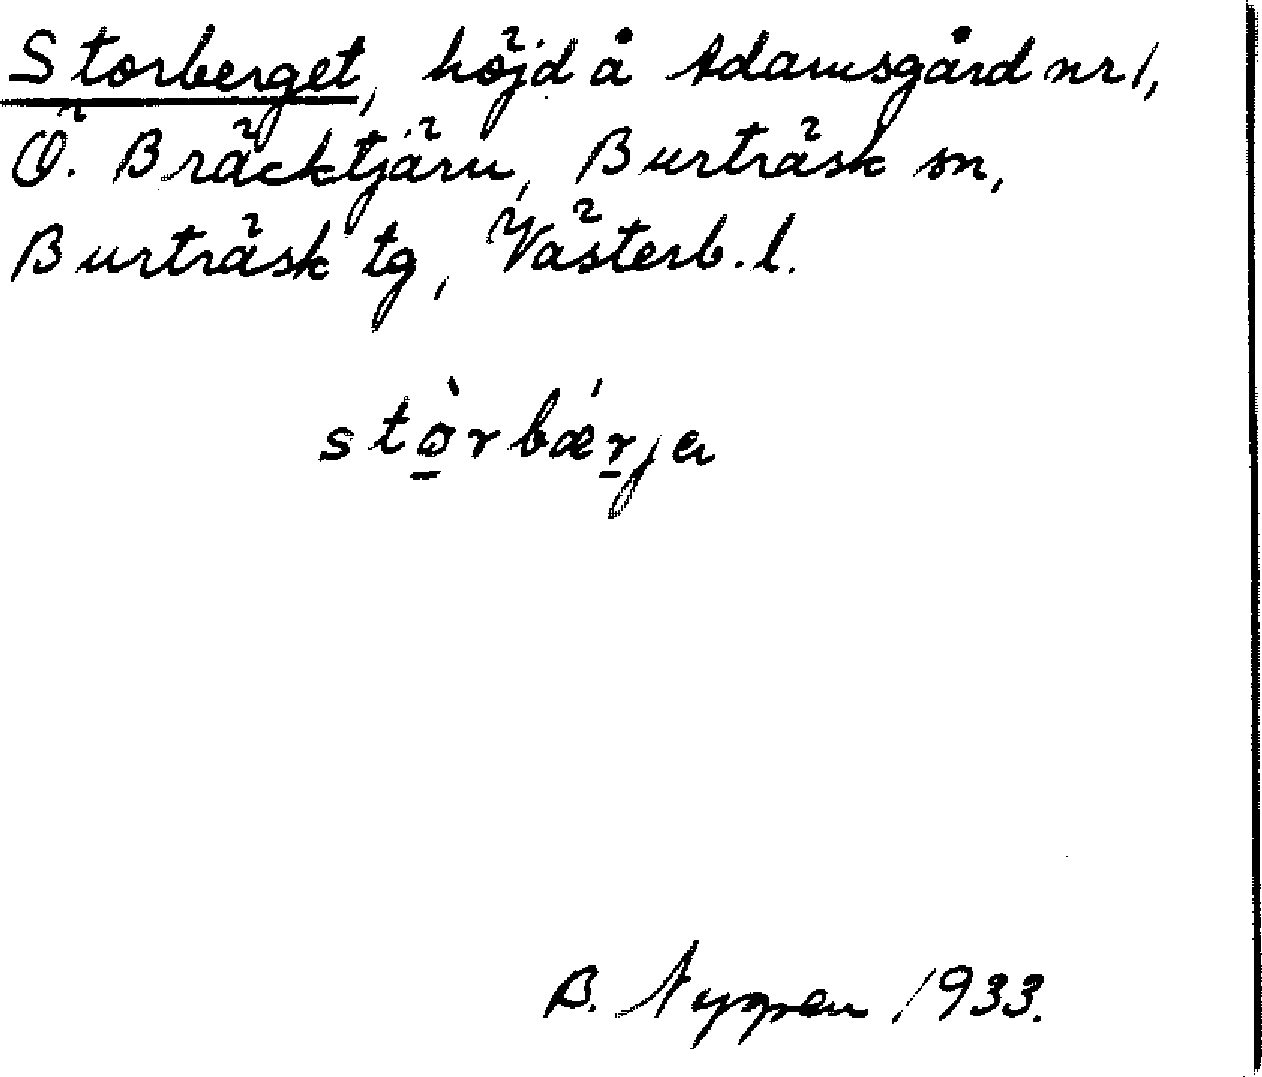 Storberget, höjd å Adamsgård nr 1,
Ö. Bräcktjärn, Burträsk sn,
Burträsk tg, Västerb. l.
stò̱rbǽṟja
B. Nygren 1933.